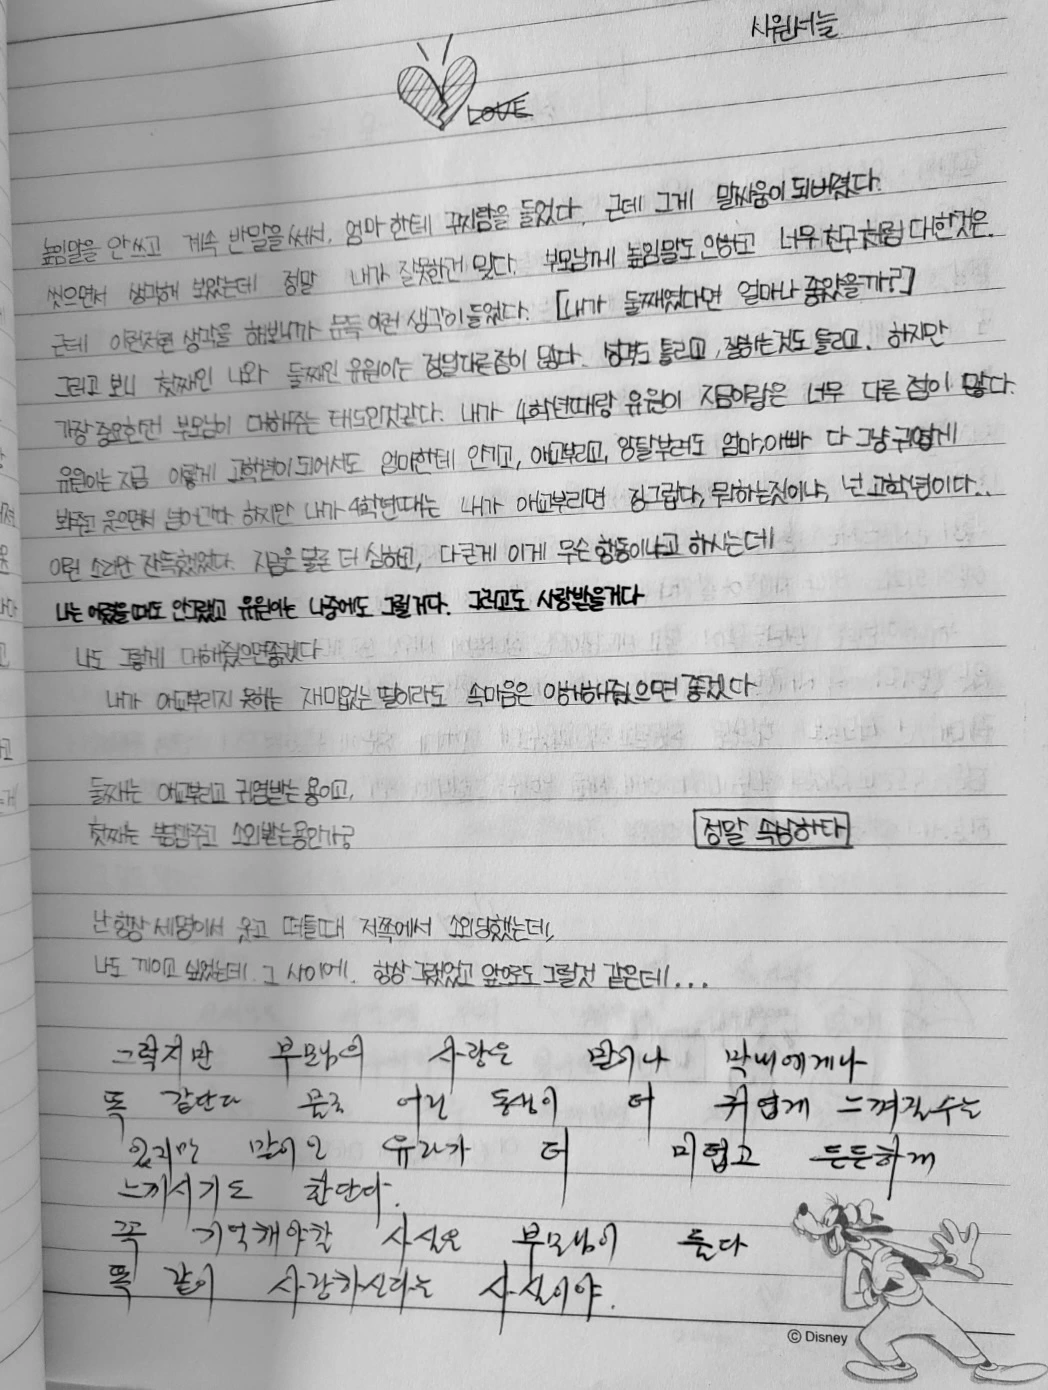 시원서늘
LOVE
높임말을 안쓰고 계속 반말을 써서, 엄마한테 꾸지람을 들었다. 근데 그게 말싸움이 되버렸다.
씻으면서 생각해 보았는데 정말 내가 잘못한게 맞다. 부모님께 높임말도 안하고 너무 친구처럼 대한것은.
근데 이런저런 생각을 해보니까 문득 이런 생각이 들었다. [내가 둘째였다면 얼마나 좋았을까?]
그러고 보니 첫째인 나와 둘째인 유원이는 정말다른점이 많다. 성격도 틀리고, 잘하는것도 틀리고. 하지만
가장 중요한건 부모님이 대해주는 태도인것같다. 내가 4학년때랑 유원이 지금이랑은 너무 다른 점이 많다.
유원이는 지금 이렇게 고학년이 되어서도 엄마한테 안기고, 애교부리고, 앙탈부려도 엄마,아빠 다 그냥 귀엽게
봐주고 웃으면서 넘어간다 하지만 내가 4학년때는 내가 애교부리면 징그럽다, 뭐하는짓이냐, 넌 고학년이다..
이런 소리만 잔뜩했었다. 지금은 물론 더 심하고, 다큰게 이게 무슨 행동이냐고 하시는데
나는 어렸을때도 안그랬고 유원이는 나중에도 그럴거다. 그러고도 사랑받을거다
나도 그렇게 대해줬으면좋겠다
내가 애교부리지 못하는 재미없는 딸이라도 속마음은 이해해줬으면 좋겠다
둘째는 애교부리고 귀염받는 용이고,
첫째는 부담주고 소외받는용인가?
정말 속상하다
난 항상 세명이서 웃고 떠들때 저쪽에서 소외당했는데,
나도 끼이고 싶었는데. 그 사이에. 항상 그랬었고 앞으로도 그럴것 같은데...
그렇지만 부모님의 사랑은 맏이나 막내에게나
똑 같단다 물론 어린 동생이 더 귀엽게 느껴질수는
있지만 맏이인 유라가 더 미덥고 든든하게
느끼시기도 한단다.
꼭 기억해야할 사실은 부모님이 둘다
똑 같이 사랑하신다는 사실이야.
© Disney